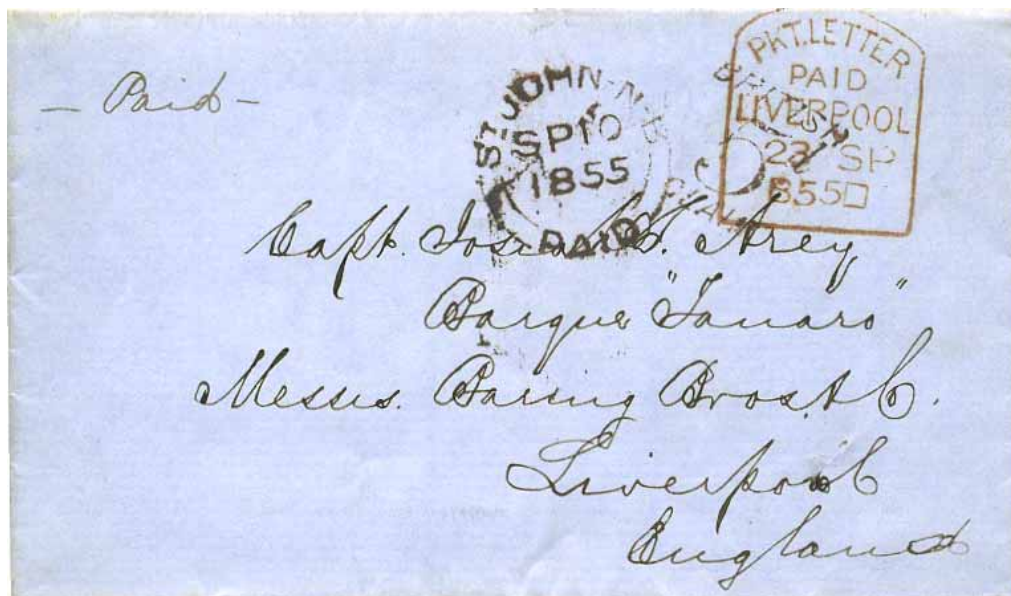 — Paid —
ST. JOHN N.B
SP 10
1855
PAID
PKT. LETTER
PAID
LIVERPOOL
SP
855
Capt. Josiah Arey
Barque "Tanaro"
Messrs. Baring Bros. & Co.
Liverpool
England